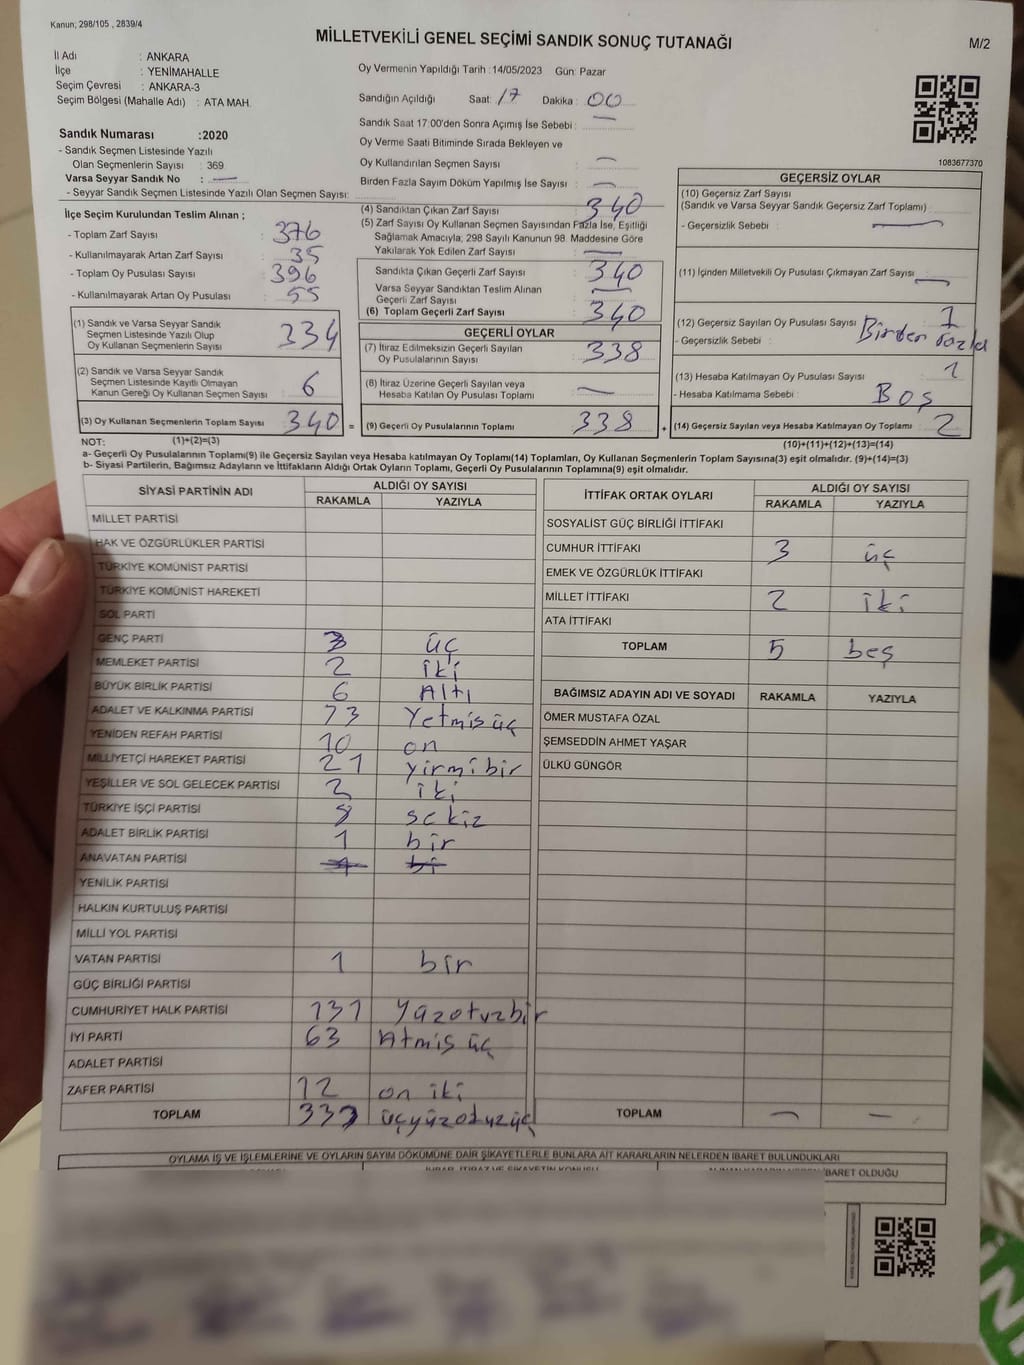 Kanun; 298/105 , 2839/4
MİLLETVEKİLİ GENEL SEÇİMİ SANDIK SONUÇ TUTANAĞI
M/2
İl Adı : ANKARA
İlçe : YENİMAHALLE
Seçim Çevresi : ANKARA-3
Seçim Bölgesi (Mahalle Adı) : ATA MAH.
Sandık Numarası :2020
- Sandık Seçmen Listesinde Yazılı
Olan Seçmenlerin Sayısı : 369
Varsa Seyyar Sandık No : —
- Seyyar Sandık Seçmen Listesinde Yazılı Olan Seçmen Sayısı:
Oy Vermenin Yapıldığı Tarih :14/05/2023 Gün: Pazar
Sandığın Açıldığı Saat: 17 Dakika : 00
Sandık Saat 17:00'den Sonra Açımış İse Sebebi : —
Oy Verme Saati Bitiminde Sırada Bekleyen ve
Oy Kullandırılan Seçmen Sayısı : —
Birden Fazla Sayım Döküm Yapılmış İse Sayısı : —
1083677370
İlçe Seçim Kurulundan Teslim Alınan ;
- Toplam Zarf Sayısı : 376
- Kullanılmayarak Artan Zarf Sayısı : 35
- Toplam Oy Pusulası Sayısı : 396
- Kullanılmayarak Artan Oy Pusulası : 55
(1) Sandık ve Varsa Seyyar Sandık
Seçmen Listesinde Yazılı Olup
Oy Kullanan Seçmenlerin Sayısı : 334
(2) Sandık ve Varsa Seyyar Sandık
Seçmen Listesinde Kayıtlı Olmayan
Kanun Gereği Oy Kullanan Seçmen Sayısı : 6
(3) Oy Kullanan Seçmenlerin Toplam Sayısı : 340 =
(4) Sandıktan Çıkan Zarf Sayısı : 340
(5) Zarf Sayısı Oy Kullanan Seçmen Sayısından Fazla İse, Eşitliği
Sağlamak Amacıyla, 298 Sayılı Kanunun 98. Maddesine Göre
Yakılarak Yok Edilen Zarf Sayısı : —
Sandıkta Çıkan Geçerli Zarf Sayısı : 340
Varsa Seyyar Sandıktan Teslim Alınan
Geçerli Zarf Sayısı : —
(6) Toplam Geçerli Zarf Sayısı : 340
GEÇERLİ OYLAR
(7) İtiraz Edilmeksizin Geçerli Sayılan
Oy Pusulalarının Sayısı : 338
(8) İtiraz Üzerine Geçerli Sayılan veya
Hesaba Katılan Oy Pusulası Toplamı : —
(9) Geçerli Oy Pusulalarının Toplamı : 338 +
GEÇERSİZ OYLAR
(10) Geçersiz Zarf Sayısı
(Sandık ve Varsa Seyyar Sandık Geçersiz Zarf Toplamı) :
- Geçersizlik Sebebi : —
(11) İçinden Milletvekili Oy Pusulası Çıkmayan Zarf Sayısı : —
(12) Geçersiz Sayılan Oy Pusulası Sayısı : 1
- Geçersizlik Sebebi : Birden fazla
(13) Hesaba Katılmayan Oy Pusulası Sayısı : 1
- Hesaba Katılmama Sebebi : Boş
(14) Geçersiz Sayılan veya Hesaba Katılmayan Oy Toplamı : 2
NOT: (1)+(2)=(3)
(10)+(11)+(12)+(13)=(14)
a- Geçerli Oy Pusulalarının Toplamı(9) ile Geçersiz Sayılan veya Hesaba Katılmayan Oy Toplamı(14) Toplamları, Oy Kullanan Seçmenlerin Toplam Sayısına(3) eşit olmalıdır. (9)+(14)=(3)
b- Siyasi Partilerin, Bağımsız Adayların ve İttifakların Aldığı Ortak Oyların Toplamı, Geçerli Oy Pusulalarının Toplamına(9) eşit olmalıdır.
SİYASİ PARTİNİN ADI ALDIĞI OY SAYISI
RAKAMLA YAZIYLA
MİLLET PARTİSİ
HAK VE ÖZGÜRLÜKLER PARTİSİ
TÜRKİYE KOMÜNİST PARTİSİ
TÜRKİYE KOMÜNİST HAREKETİ
SOL PARTİ
GENÇ PARTİ 3 üç
MEMLEKET PARTİSİ 2 iki
BÜYÜK BİRLİK PARTİSİ 6 Altı
ADALET VE KALKINMA PARTİSİ 73 Yetmiş üç
YENİDEN REFAH PARTİSİ 10 on
MİLLİYETÇİ HAREKET PARTİSİ 21 yirmibir
YEŞİLLER VE SOL GELECEK PARTİSİ 2 iki
TÜRKİYE İŞÇİ PARTİSİ 8 sekiz
ADALET BİRLİK PARTİSİ 1 bir
ANAVATAN PARTİSİ
YENİLİK PARTİSİ
HALKIN KURTULUŞ PARTİSİ
MİLLİ YOL PARTİSİ
VATAN PARTİSİ 1 bir
GÜÇ BİRLİĞİ PARTİSİ
CUMHURİYET HALK PARTİSİ 131 Yüzotuzbir
İYİ PARTİ 63 Atmış üç
ADALET PARTİSİ
ZAFER PARTİSİ 12 on iki
TOPLAM 333 üçyüzotuzüç
İTTİFAK ORTAK OYLARI ALDIĞI OY SAYISI
RAKAMLA YAZIYLA
SOSYALİST GÜÇ BİRLİĞİ İTTİFAKI
CUMHUR İTTİFAKI 3 üç
EMEK VE ÖZGÜRLÜK İTTİFAKI
MİLLET İTTİFAKI 2 iki
ATA İTTİFAKI
TOPLAM 5 beş
BAĞIMSIZ ADAYIN ADI VE SOYADI RAKAMLA YAZIYLA
ÖMER MUSTAFA ÖZAL
ŞEMSEDDİN AHMET YAŞAR
ÜLKÜ GÜNGÖR
TOPLAM — —
OYLAMA İŞ VE İŞLEMLERİNE VE OYLARIN SAYIM DÖKÜMÜNE DAİR ŞİKAYETLERLE BUNLARA AİT KARARLARIN NELERDEN İBARET BULUNDUKLARI
İBARET OLDUĞU